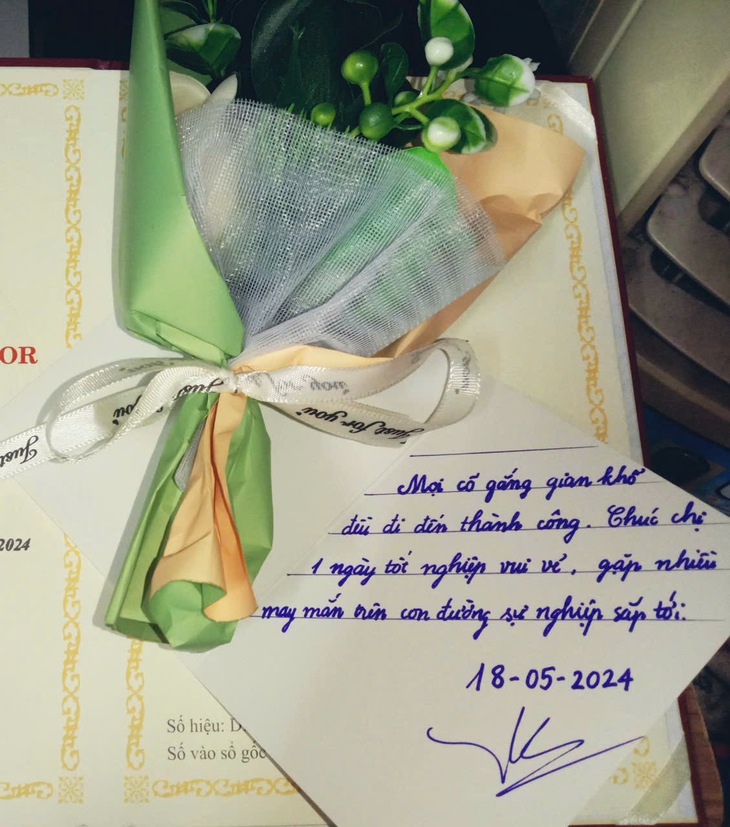 OR
Just for you
Just for you
Just
2024
Mọi cố gắng gian khổ
đều đi đến thành công. Chúc chị
1 ngày tốt nghiệp vui vẻ, gặp nhiều
may mắn trên con đường sự nghiệp sắp tới.
18-05-2024
Số hiệu: D
Số vào sổ gốc